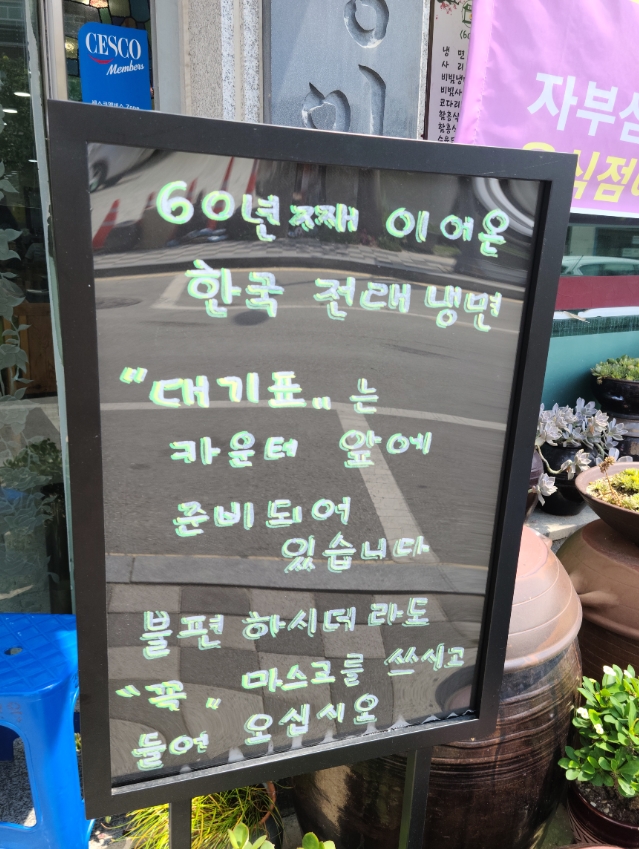 CESCO
Members
냉면
사리
자부심
60년째 이어온
한국 전래냉면
"대기표"는
카운터 앞에
준비되어
있습니다
불편 하시더라도
"꼭" 마스크를 쓰시고
들어 오십시오